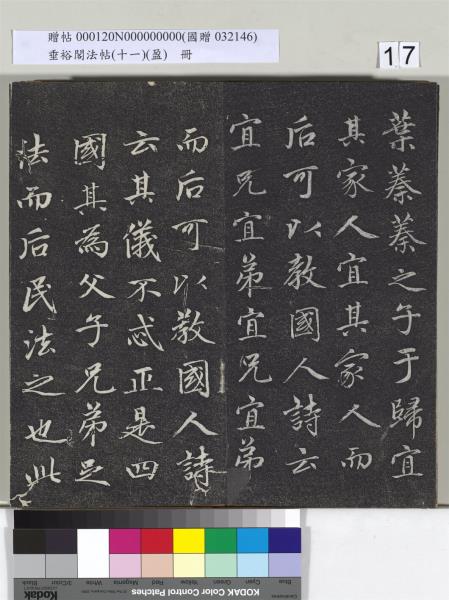 贈帖 000120N000000000(國贈 032146)
垂裕閣法帖(十一)(盈) 冊
17
葉蓁蓁之子于歸宜
其家人宜其家人而
后可以教國人詩云
宜兄宜弟宜兄宜弟
而后可以教國人詩
云其儀不忒正是四
國其為父子兄弟足
法而后民法之也此
Kodak Color Control Patches
Blue Cyan Green Yellow Red Magenta White 3/Color Black